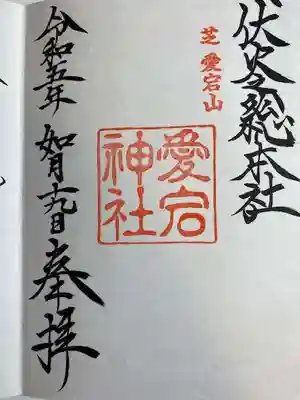 伏火之総本社
芝 愛宕山
愛宕
神社
令和五年 如月十九日 奉拝